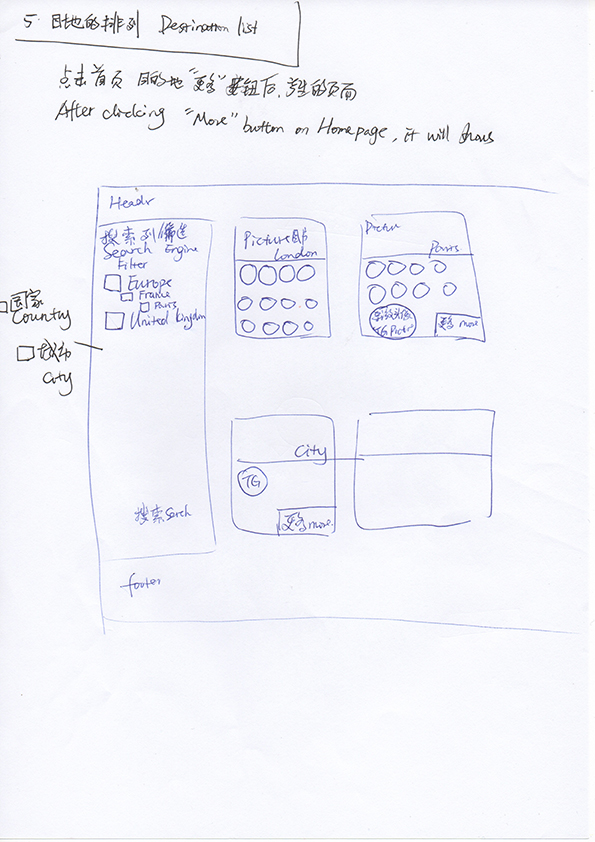 5. 目地的排列 Destination list
点击首页 目的地 "更多" 按钮后, 产生的页面
After clicking "More" button on Homepage, it will shows
Header
搜索列/筛选
Search Engine
Filter
Europe
France
Paris
United Kingdom
国家
Country
城市
City
搜索 Serch
Picture 图片
London
Pictur
Paris
TG Pictur
更多 more
City
TG
更多 more
footer